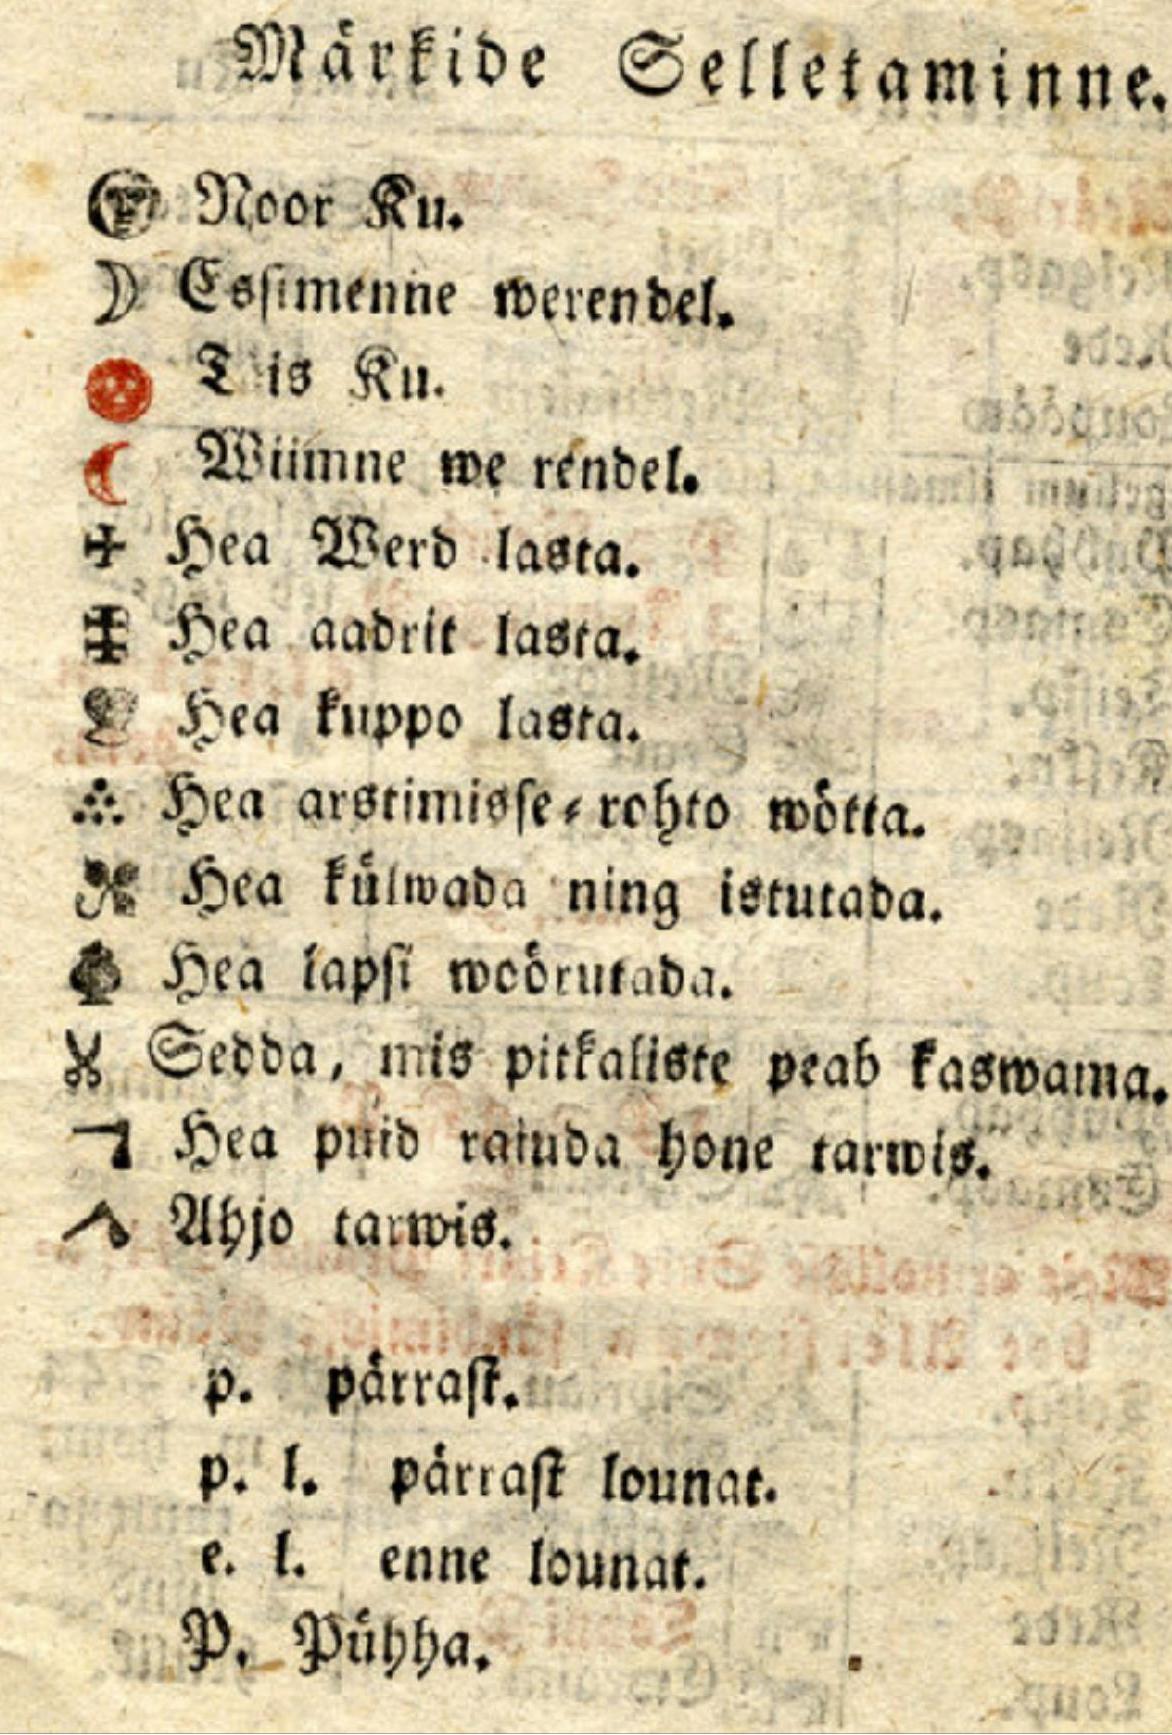 Märkide Selletaminne.
Noor Ku.
Essimenne werendel.
T is Ku.
Wiimne we rendel.
Hea Werd lasta.
Hea aadrit lasta.
Hea kuppo lasta.
Hea arstimisse-rohto wötta.
Hea külwada ning istutada.
Hea lapsi woörutada.
Sedda, mis pitkaliste peab kaswama.
Hea puid raiuda hone tarwis.
Ahjo tarwis.
p. pärrast.
p. l. pärrast lounat.
e. l. enne lounat.
P. Pühha.